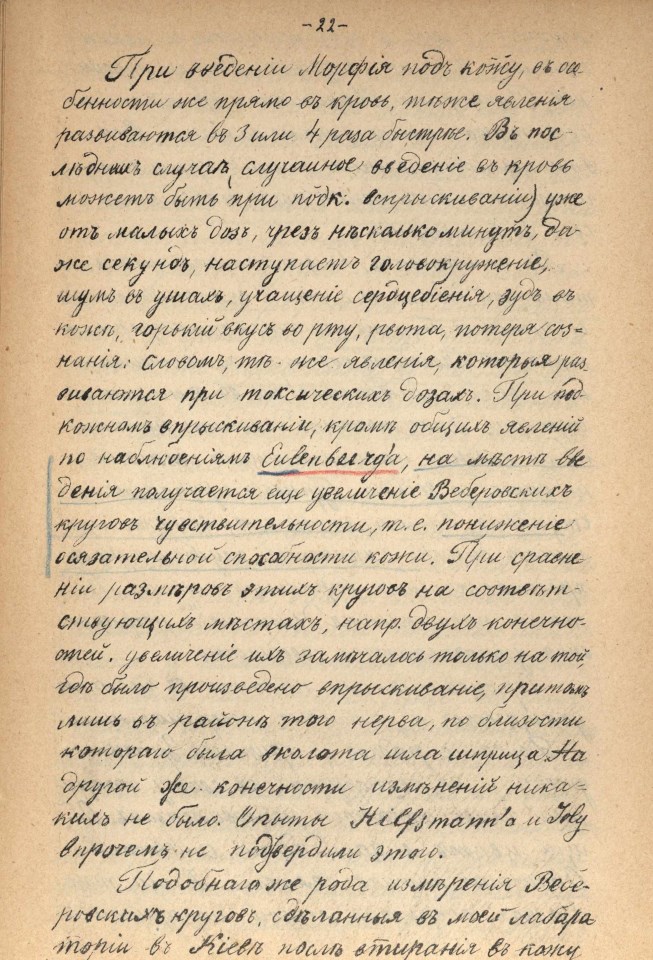 -22-
При введеніи Морфія подъ кожу, въ осо-
бенности же прямо въ кровь, тѣже явленія
развиваются въ 3 или 4 раза быстрѣе. Въ пос-
лѣднемъ случаѣ, случайное введеніе въ кровь
можетъ быть при подк. вспрыскиваніи) уже
отъ малыхъ дозъ, чрезъ нѣсколько минутъ, да-
же секундъ, наступаетъ головокруженіе,
шумъ въ ушахъ, учащеніе сердцебіенія, зудъ въ
кожѣ, горькій вкусъ во рту, рвота, потеря соз-
нанія: словомъ, тѣ-же явленія, которыя раз-
виваются при токсическихъ дозахъ. При под-
кожномъ впрыскиваніи, кромѣ общихъ явленій
по наблюденіямъ Eulenburg'а, на мѣстѣ вве
денія получается еще увеличеніе Веберовскихъ
круговъ чувствительности, т.е. пониженіе
осязательной способности кожи. При сравне
ніи размѣровъ этихъ круговъ на соотвѣт-
ствующихъ мѣстахъ, напр. двухъ конечно-
стей. увеличеніе ихъ замѣчалось только на той,
гдѣ было произведено впрыскиваніе, притомъ
лишь въ районѣ того нерва, по близости
котораго была вколота игла шприца. На
другой же конечности измѣненій ника-
кихъ не было. Опыты Hilfsmann'а и Joly
впрочемъ не подтвердили этого.
Подобнаго же рода измѣренія Вебе-
ровскихъ круговъ, сдѣланныя въ моей лабара
торіи въ Кіевѣ послѣ втиранія въ кожу